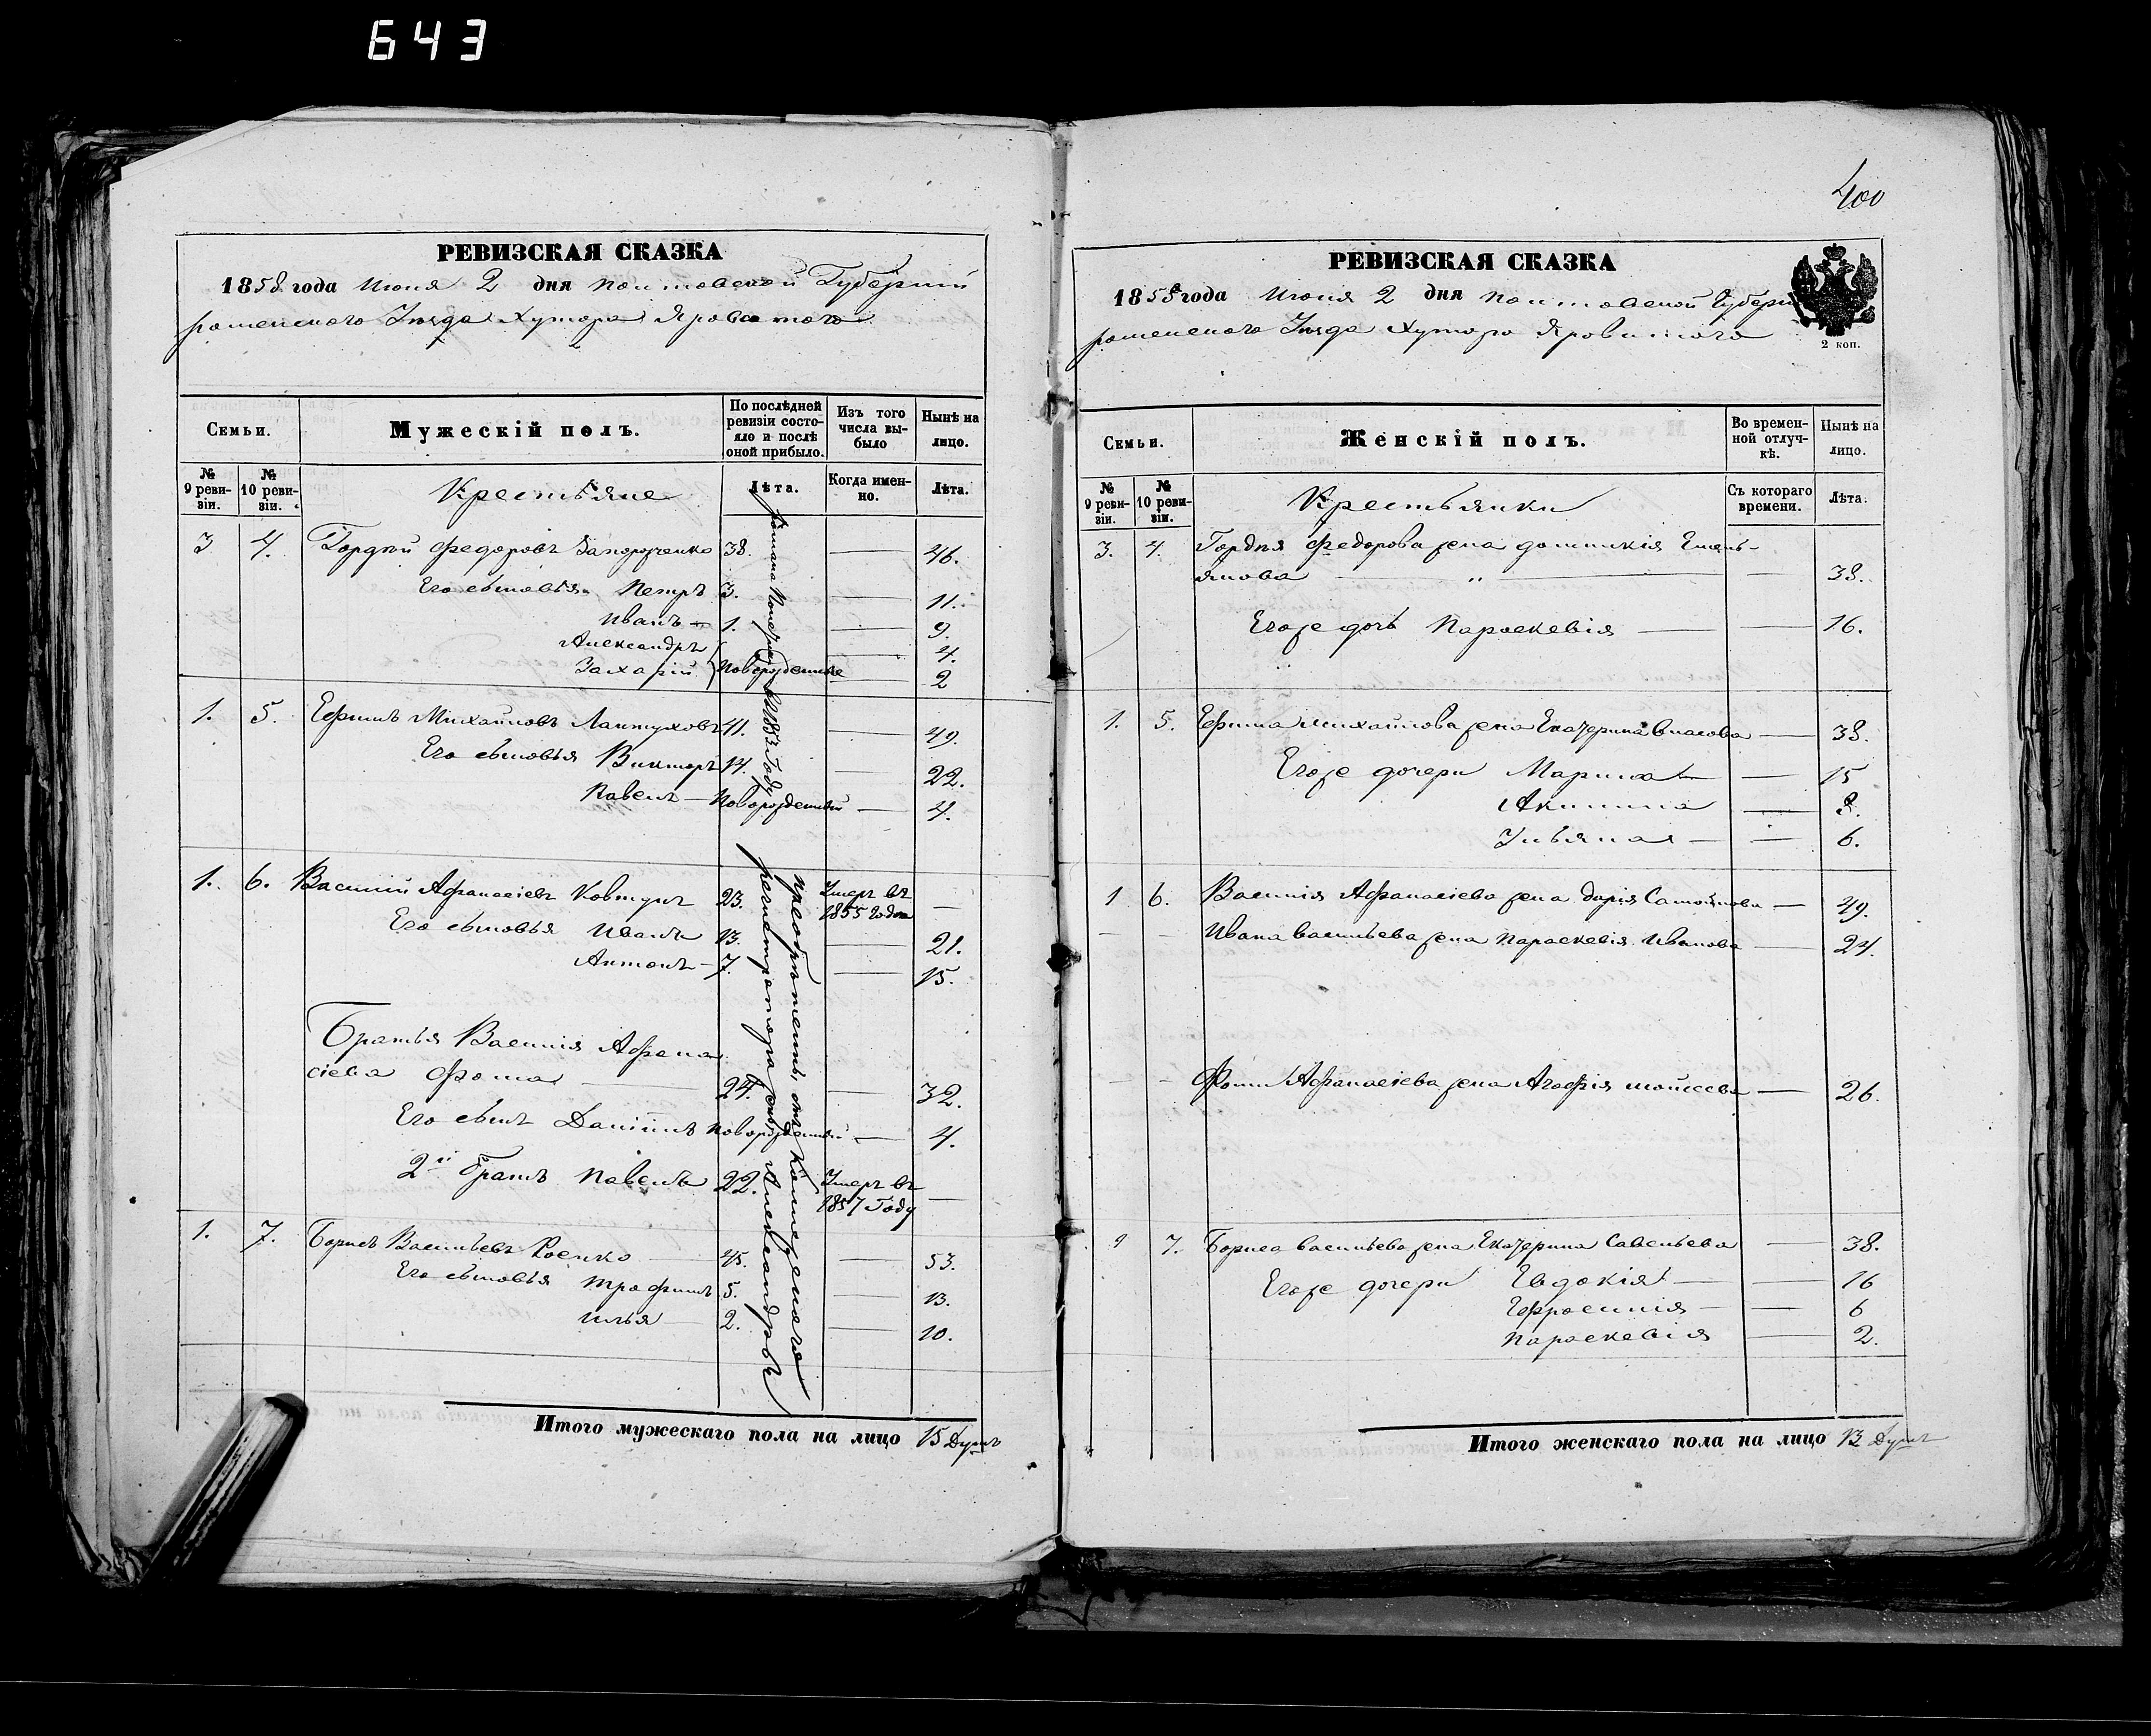 643
400
РЕВИЗСКАЯ СКАЗКА
1858 года Июня 2 дня Полтавской Губернии
роменского Уѣзда Хутора Яроватого
Семьи.
Мужескій полъ.
По послѣдней ревизіи состояло и послѣ оной прибыло.
Изъ того числа выбыло
Нынѣ на лицо.
№ 9 ревизіи.
№ 10 ревизіи.
Крестьяне
Лѣта.
Когда именно.
Лѣта.
3 4. Гордѣй Федоровъ Запорожченко 38. — 46.
Его сыновья Петръ 3. — 11.
Иванъ — 1. — 9.
Александръ — 4.
Захарій Новорожденные — 2
1. 5. Ефимъ Михайловъ Лантуховъ 41. — 49.
Его сыновья Викторъ 14. — 22.
Павелъ — Новорожденный — 4.
1. 6. Василій Афанасіевъ Ковтунъ 23. Умеръ въ 1855 году —
Его сыновья Иванъ 13. — 21.
Антонъ — 7. — 15.
Братья Василія Афана
сіева Фома — 24. — 32.
Его сынъ Даніилъ Новорожденный — 4.
2й Братъ Павелъ 22. Умеръ въ 1857 Году —
1. 7. Борисъ Васильевъ Роенко 45. — 53.
Его сыновья Трофимъ 5. — 13.
Илья — 2. — 10.
въ 1853 Году
пріобрѣтены отъ
регистратора жены Александры
Итого мужескаго пола на лицо 15 Душъ
РЕВИЗСКАЯ СКАЗКА
1858 года Июня 2 дня Полтавской Губерни
роменского Уѣзда Хутора Яроватого
2 коп.
Семьи.
Женскій полъ.
Во временной отлучкѣ.
Нынѣ на лицо.
№ 9 ревизіи.
№ 10 ревизіи.
Крестьянки
Съ котораго времени.
Лѣта.
3. 4. Гордѣя Федорова жена домникія Емель-
янова — „ — — 38.
Егоже дочь Параскевія — — 16.
1. 5. Ефима михайлова жена Екатерина власова — 38.
Егоже дочери Марина — — 15
Акилина — 8.
Ульяная — — 6.
1 6. Василія Афанасіева жена дарія Самойлова — 49.
— — Ивана васильева жена параскевія Иванова — 24.
— — Фомы Афанасіева жена Агафія моисеева — 26.
1 7. Бориса васильева жена Екатерина Савельева — 38.
Егоже дочери Евдокія — — 16
Ефросинія — — 6
параскевія — 2.
Итого женскаго пола на лицо 13 Душъ